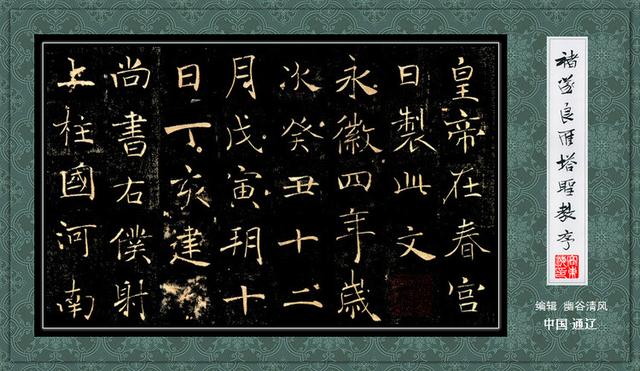 褚遂良雁塔聖教序
编辑 幽谷清风
中国·通辽
皇帝在春宮
日製此文
永徽四年歲
次癸丑十二
月戊寅朔十
日丁亥建
尚書右僕射
上柱國河南